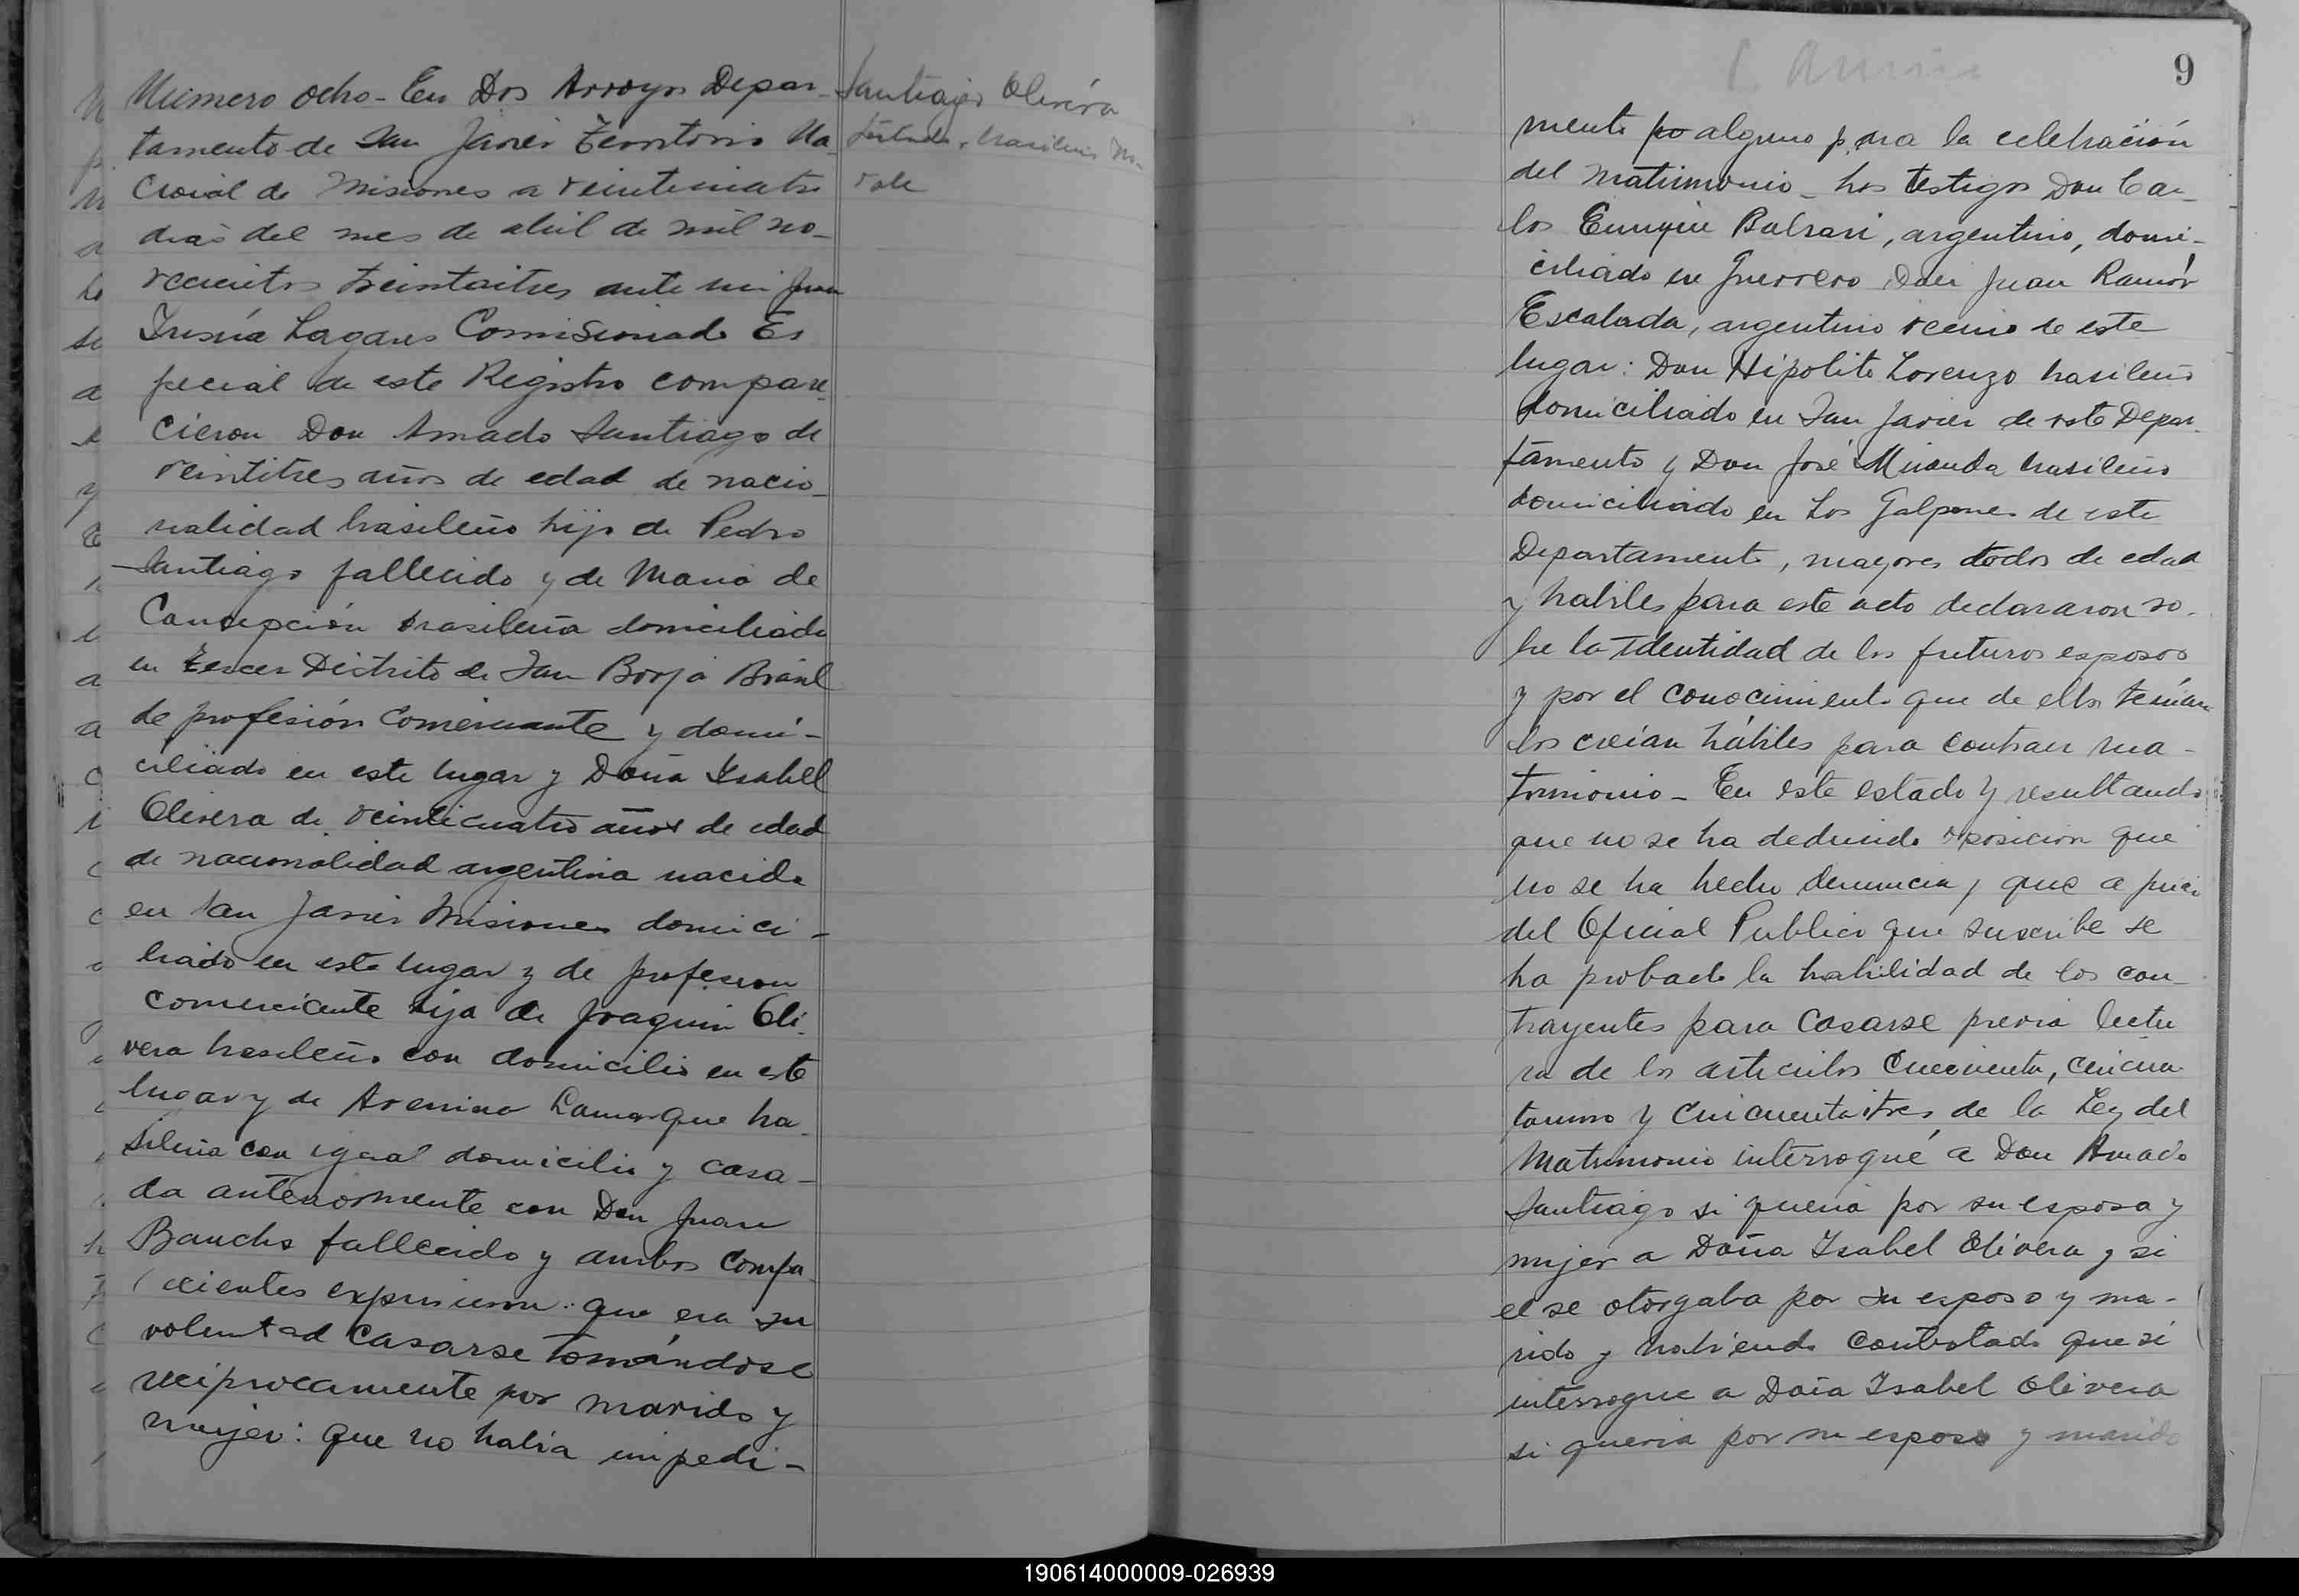 Numero ocho - En Dos Arroyos Depar-
tamento de San Javier Territorio Na-
cional de Misiones a veinticuatro
dias del mes de abril de mil no-
vecientos treintaitres ante mi Juan
Lagares Comisionado Es
pecial de este Registro compare
cieron Don Amado Santiago de
veintitres años de edad de nacio-
nalidad brasileño hijo de Pedro
Santiago fallecido y de Maria de
Concepción brasileña domiciliada
en tercer Distrito de San Borja Brasil
de profesión comerciante y domi-
ciliado en este lugar y Doña Isabel
Olivera de veinticuatro años de edad
de nacionalidad argentina nacida
en San Javier Misiones domici-
liada en este lugar y de profesion
comerciante hija de Joaquin Oli-
vera brasileño con domicilio en este
lugar y de Lamarque bra-
sileña con igual domicilio y casa-
da anteriormente con Don Juan
Baucho fallecido y ambos compa-
recientes expusieron: que era su
voluntad casarse tomándose
reciprocamente por marido y
mujer: que no habia impedi-
Santiago Olivera
9
mento po alguno para la celebración
del matrimonio - Los testigos Don Car-
los Enrique Balsari, argentino, domi-
ciliado en Guerrero Don Juan Ramón
Escalada, argentino vecino de este
lugar: Don Hipolito Lorenzo brasileño
domiciliado en San Javier de este Depar-
tamento y Don José Miranda brasileño
domiciliado en Los Galpones de este
Departamento, mayores todos de edad
y habiles para este acto declararon so-
bre la identidad de los futuros esposos
y por el conocimiento que de ellos tenian
los creian hábiles para contraer ma-
trimonio - En este estado y resultando
que no se ha deducido oposicion que
no se ha hecho denuncia, que a juicio
del Oficial Publico que suscribe se
ha probado la habilidad de los con-
trayentes para casarse previa lectu
ra de los articulos cincuenta, cincuen
taiuno y cincuentaitres de la Ley del
Matrimonio interrogué a Don Amado
Santiago si queria por su esposa y
mujer a Doña Isabel Olivera y si
el se otorgaba por su esposo y ma-
rido y habiendo contestado que si
interrogue a Doña Isabel Olivera
si queria por su esposo y marido
190614000009-026939